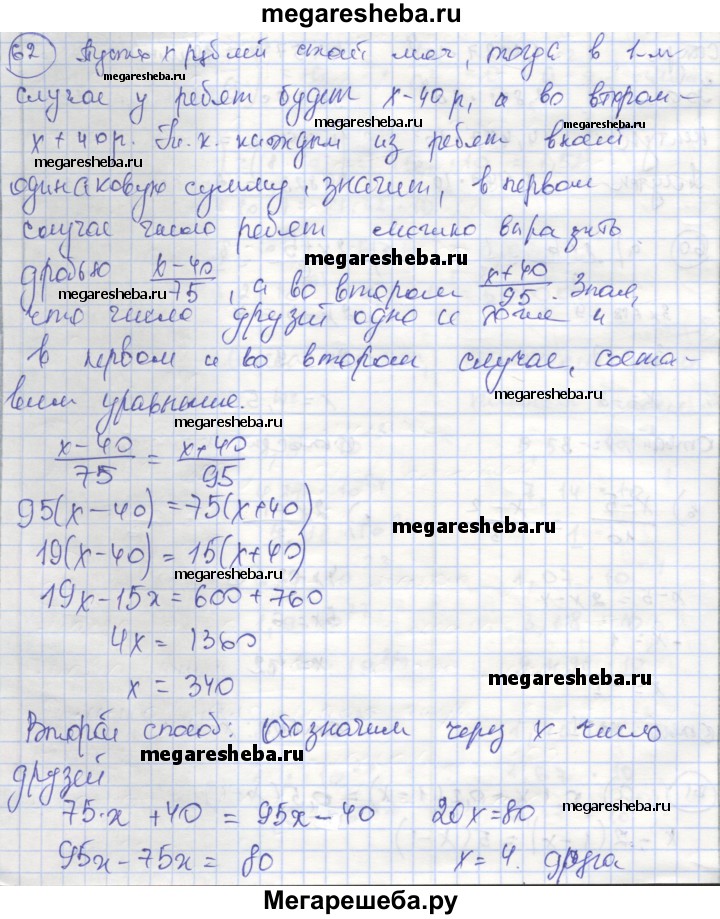 megaresheba.ru
62 Пусть x рублей стоит мяч, тогда в 1-м
megaresheba.ru
случае у ребят будет x-40 р, а во втором -
megaresheba.ru
megaresheba.ru
x+40р. Т. к. каждый из ребят вносил
megaresheba.ru
одинаковую сумму, значит, в первом
случае число ребят можно выразить
megaresheba.ru
дробью x-40/75, а во втором x+40/95. Зная,
megaresheba.ru
megaresheba.ru
что число друзей одно и тоже и
в первом и во втором случае, соста-
вим уравнение.
megaresheba.ru
x-40/75 = x+40/95
95(x-40)=75(x+40)
megaresheba.ru
19(x-40)=15(x+40)
megaresheba.ru
19x-15x=600+760
4x = 1360
x = 340
megaresheba.ru
Второй способ: Обозначим через x число
megaresheba.ru
друзей
75·x +40 = 95x-40 20x=80
megaresheba.ru
95x-75x = 80 x=4. друга
megaresheba.ru
Мегарешеба.ру